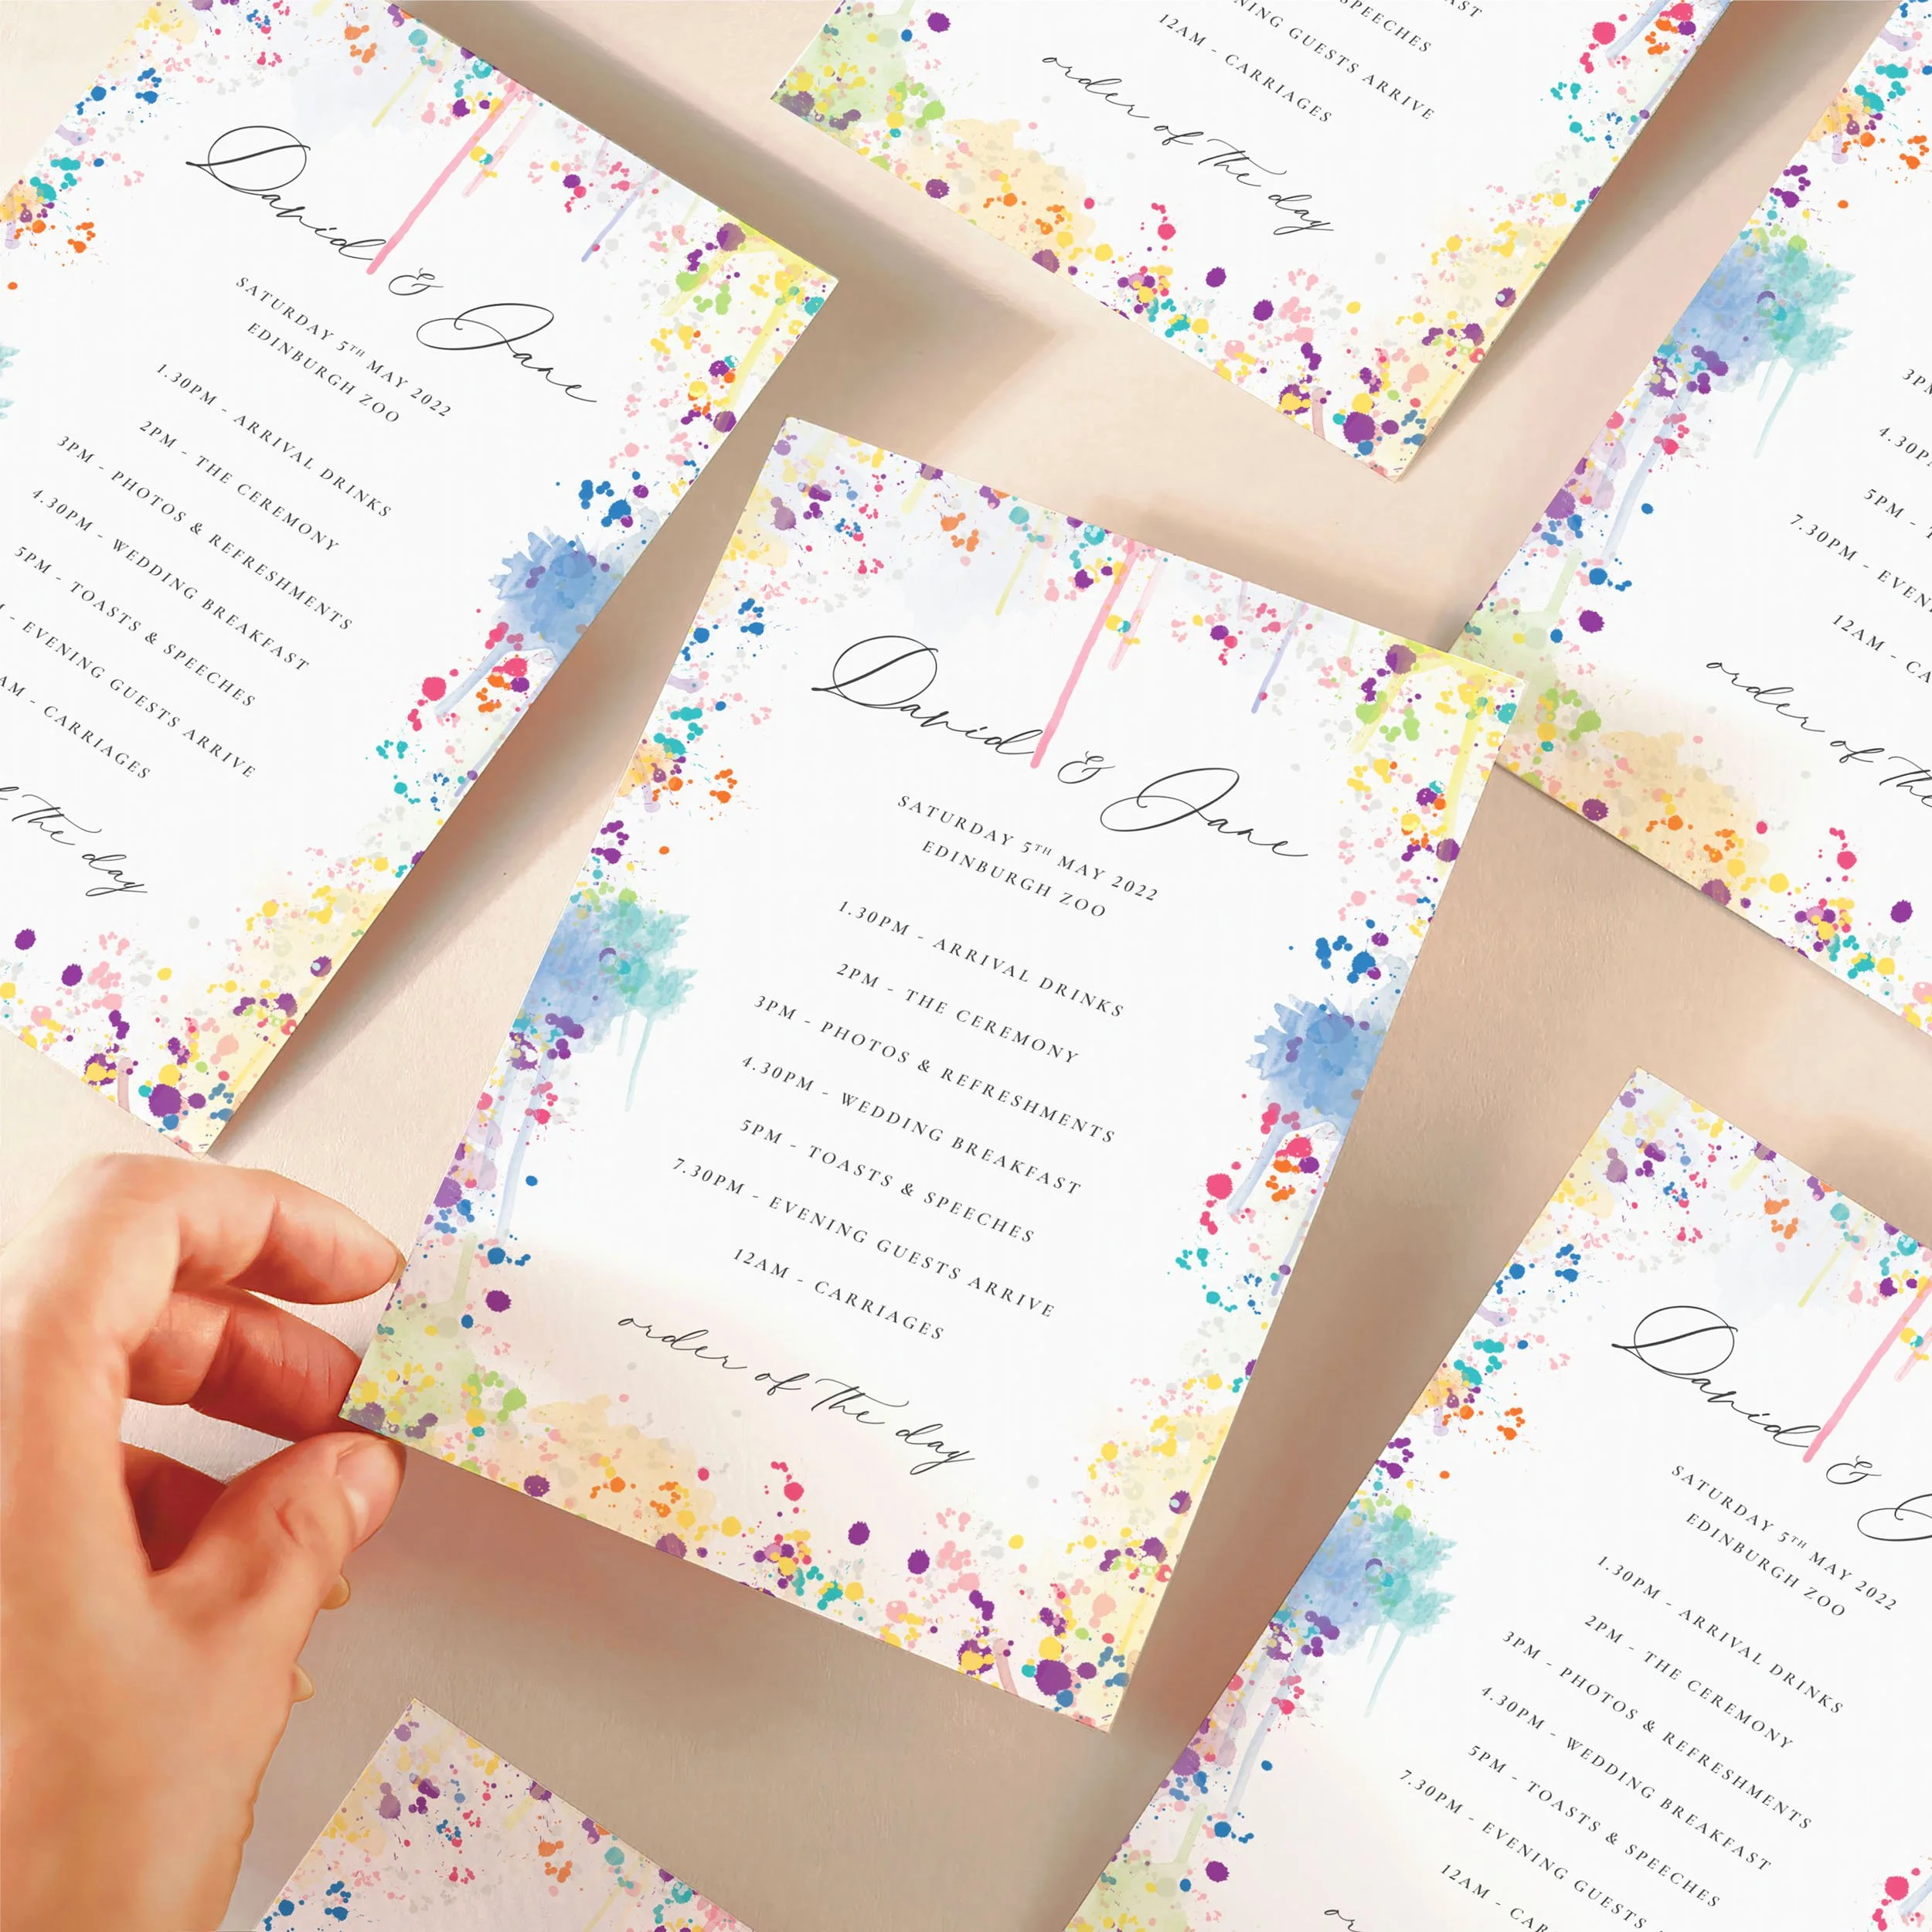 David & Jane
SATURDAY 5TH MAY 2022
EDINBURGH ZOO
1.30PM - ARRIVAL DRINKS
2PM - THE CEREMONY
3PM - PHOTOS & REFRESHMENTS
4.30PM - WEDDING BREAKFAST
5PM - TOASTS & SPEECHES
- EVENING GUESTS ARRIVE
AM - CARRIAGES
The day
SPEECHES
EVENING GUESTS ARRIVE
12AM - CARRIAGES
order of The day
David & Jane
SATURDAY 5TH MAY 2022
EDINBURGH ZOO
1.30PM - ARRIVAL DRINKS
2PM - THE CEREMONY
3PM - PHOTOS & REFRESHMENTS
4.30PM - WEDDING BREAKFAST
5PM - TOASTS & SPEECHES
7.30PM - EVENING GUESTS ARRIVE
12AM - CARRIAGES
order of The day
4.30P
5PM -
7.30PM - EVEN
12AM - CA
order of The
David &
SATURDAY 5TH MAY 2022
EDINBURGH ZOO
1.30PM - ARRIVAL DRINKS
2PM - THE CEREMONY
3PM - PHOTOS & REFRESHMENTS
4.30PM - WEDDING BREAKFAST
5PM - TOASTS & SPEECHES
7.30PM - EVENING GUESTS
12AM - CAR
or